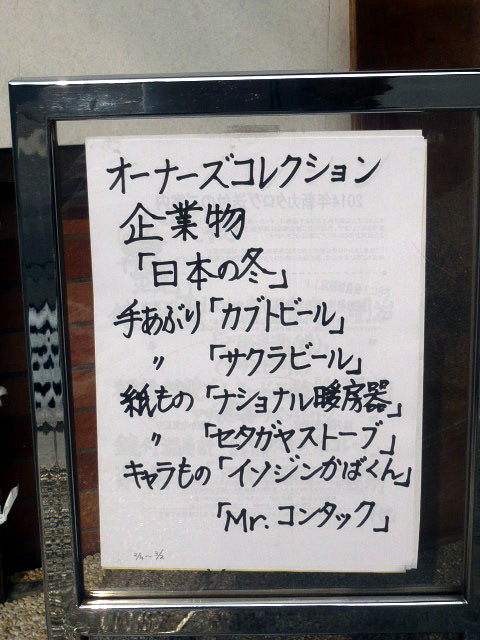 オーナーズコレクション
企業物
「日本の冬」
手あぶり「カブトビール」
〃 「サクラビール」
紙もの「ナショナル暖房器」
〃 「セタガヤストーブ」
キャラもの「イソジンかばくん」
「Mr.コンタック」